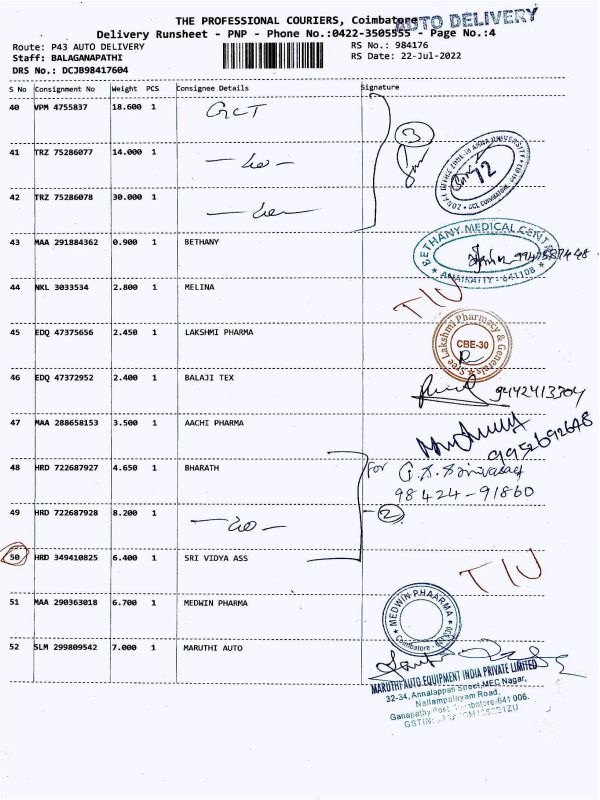 THE PROFESSIONAL COURIERS, Coimbatore
AUTO DELIVERY
Delivery Runsheet - PNP - Phone No.:0422-3505555 - Page No.:4
Route: P43 AUTO DELIVERY
RS No.: 984176
Staff: BALAGANAPATHI
RS Date: 22-Jul-2022
DRS No.: DCJB98417604
S No Consignment No Weight PCS Consignee Details Signature
40 VPM 4755837 18.600 1 GCT
3
41 TRZ 75286077 14.000 1 — do —
12
42 TRZ 75286078 30.000 1 — do —
43 MAA 291884362 0.900 1 BETHANY
BETHANY MEDICAL CENT
ANAIKATTY - 641108
44 NKL 3033534 2.800 1 MELINA
TIU
45 EDQ 47375656 2.450 1 LAKSHMI PHARMA
Sree Lakshmi Pharmacy & Generals
CBE-30
46 EDQ 47372952 2.400 1 BALAJI TEX
9442413304
47 MAA 288658153 3.500 1 AACHI PHARMA
9952692648
48 HRD 722687927 4.650 1 BHARATH
for G.S. Srinivasag
98424-91860
49 HRD 722687928 8.200 1 — do —
2
50 HRD 349410825 6.400 1 SRI VIDYA ASS
TIU
51 MAA 290363018 6.700 1 MEDWIN PHARMA
MEDWIN PHAARMA
Coimbatore
52 SLM 299809542 7.000 1 MARUTHI AUTO
MARUTHI AUTO EQUIPMENT INDIA PRIVATE LIMITED
32-34, Annalappan Street, MEC Nagar,
Nallampalayam Road,
Ganapathy Post, Coimbatore-641 006.
GSTIN: